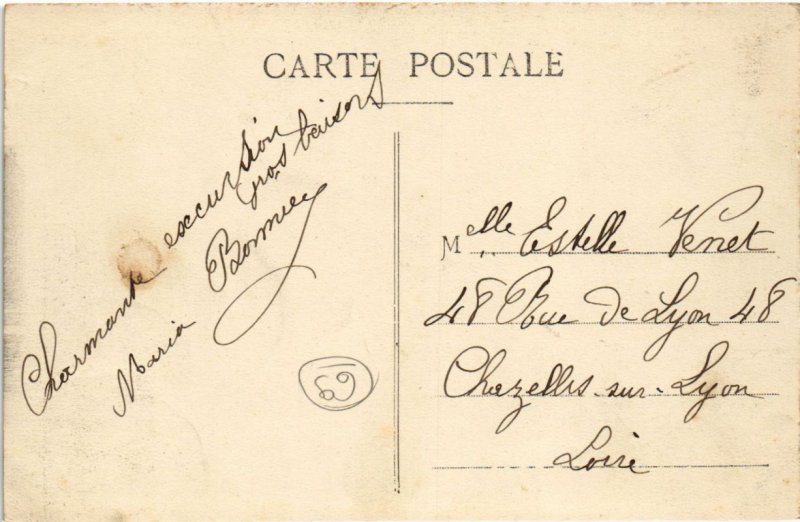 CARTE POSTALE
Charmante excursion
gros baisers
Maria
Melle Estelle Venet
48 Rue De Lyon 48
Chazelles-sur-Lyon
Loire
69